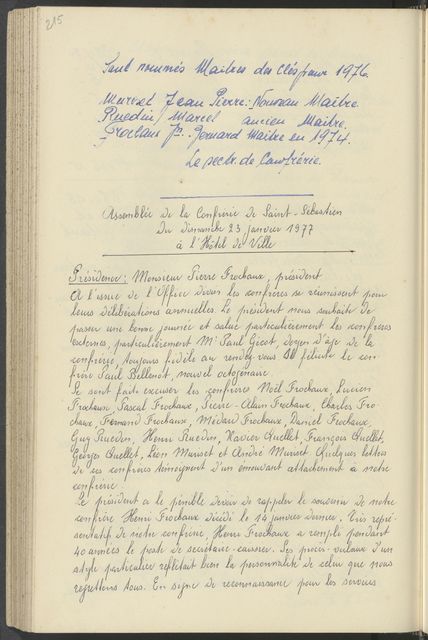 215
Sont nommés Maîtres des Clés pour 1976.
Murset Jean Pierre: Nouveau Maître.
Ruedin Marcel ancien Maître.
Frochaux Jn. Bernard Maître en 1974.
Le secr. de Confrérie.
Assemblée de la Confrérie de Saint-Sébastien
Du dimanche 23 janvier 1977
à l'Hôtel de Ville
Présidence: Monsieur Pierre Frochaux, président
A l'issue de l'Office divin les confrères se réunissent pour
leurs délibérations annuelles. Le président nous souhaite de
passer une bonne journée et salue particulièrement les confrères
externes, particulièrement Mr Paul Gicot, doyen d'âge de la
confrérie, toujours fidèle au rendez-vous. Il félicite le con-
frère Paul Bellenot, nouvel octogénaire.
Se sont fait excuser les confrères Noël Frochaux, Lucien
Frochaux, Pascal Frochaux, Pierre-Alain Frochaux, Charles Fro
chaux, Fernand Frochaux, Médard Frochaux, Daniel Frochaux,
Guy Ruedin, Henri Ruedin, Xavier Quellet, François Quellet,
Georges Quellet, Léon Murset et André Murset. Quelques lettres
de ces confrères témoignent d'un émouvant attachement à notre
confrérie.
Le président a le pénible devoir de rappeler le souvenir de notre
confrère Henri Frochaux décédé le 14 janvier dernier. Très repré-
sentatif de notre confrérie, Henri Frochaux a rempli pendant
40 années le poste de secrétaire-caissier. Ses procès-verbaux d'un
style particulier reflétait bien la personnalité de celui que nous
regrettons tous. En signe de reconnaissance pour les services